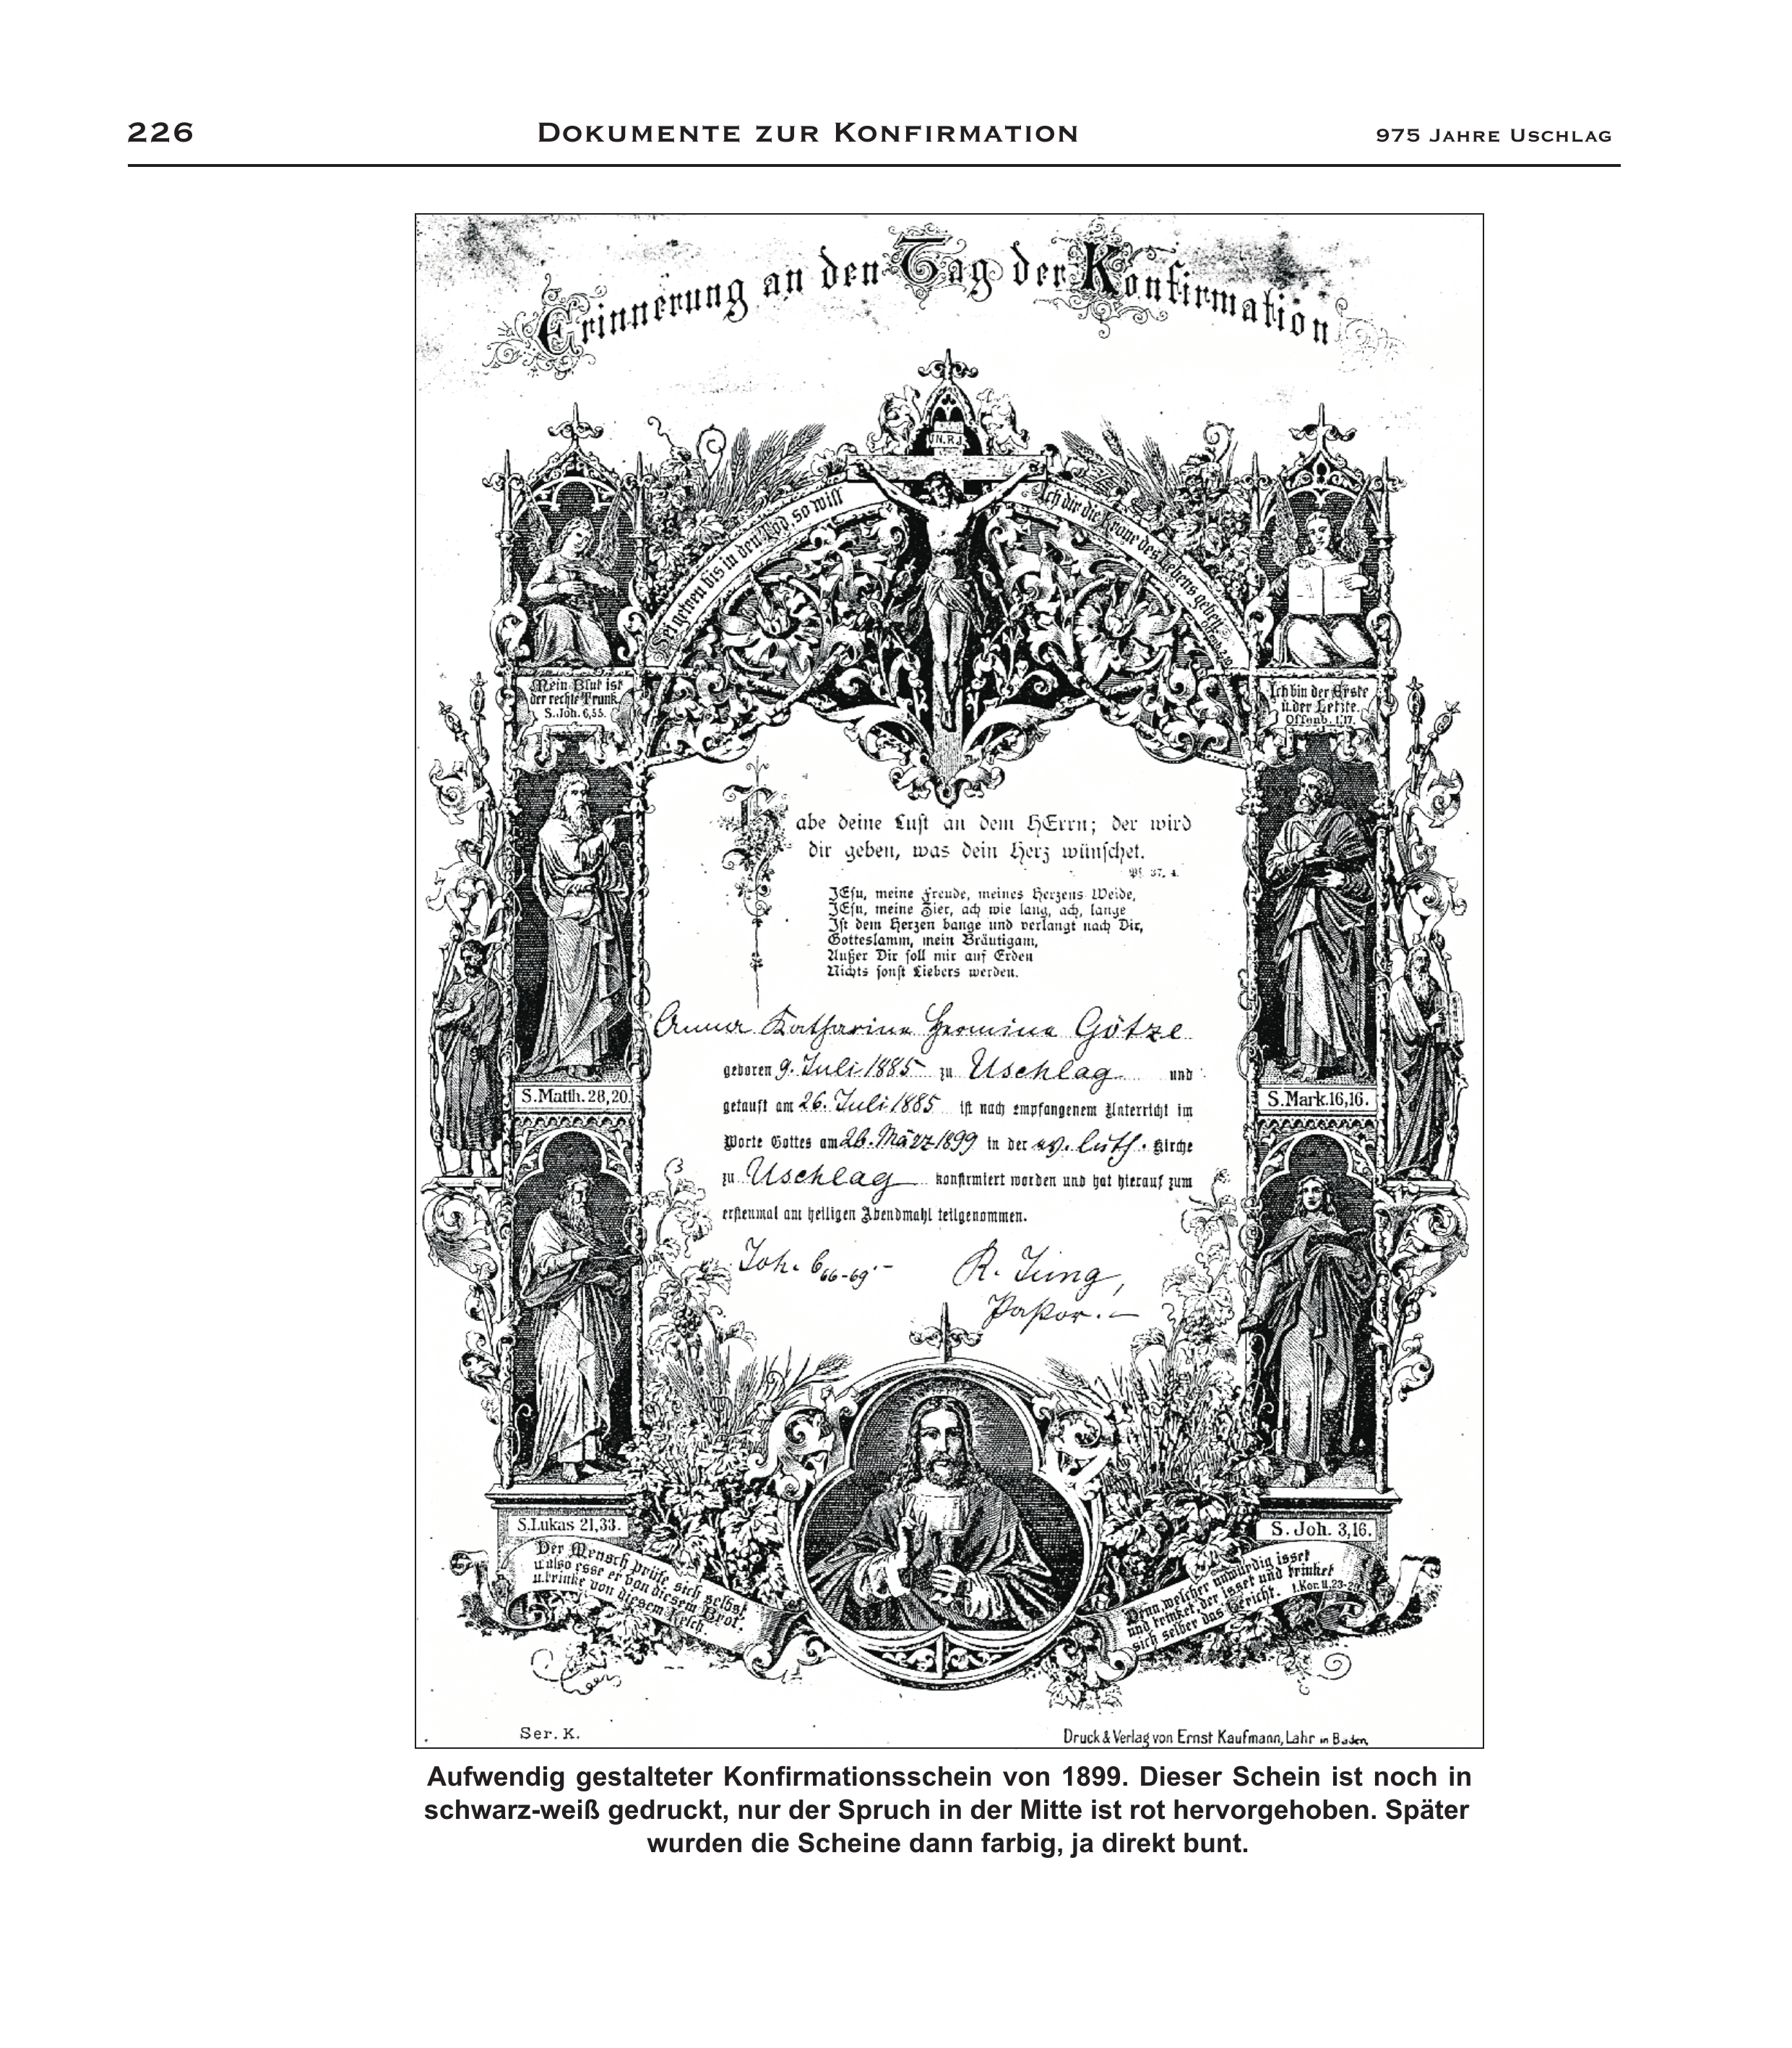 226 Dokumente zur Konfirmation 975 Jahre Uschlag
Erinnerung an den Tag der Konfirmation
J.N.R.J.
Sei getreu bis in den Tod, so will
Ich dir die Krone des Lebens geben.
Mein Blut ist
der rechte Trank.
S. Joh. 6,55.
Ich bin der Erste
u. der Letzte.
Offenb. 1,17.
Habe deine Lust an dem HErrn; der wird
dir geben, was dein Herz wünschet.
Ps. 37, 4.
JEsu, meine Freude, meines Herzens Weide,
JEsu, meine Zier, ach wie lang, ach, lange
Ist dem Herzen bange und verlangt nach Dir,
Gotteslamm, mein Bräutigam,
Außer Dir soll mir auf Erden
Nichts sonst Liebers werden.
Anna Katharina Hermina Götze
geboren 9. Juli 1885 zu Uschlag und
getauft am 26. Juli 1885 ist nach empfangenem Unterricht im
Worte Gottes am 26. März 1899 in der ev. luth. Kirche
zu Uschlag konfirmiert worden und hat hierauf zum
erstenmal am heiligen Abendmahl teilgenommen.
Joh. 6 66-69.- R. Jung,
Pastor.-
S. Matth. 28,20.
S. Mark. 16,16.
S. Lukas 21,33.
S. Joh. 3,16.
Der Mensch prüfe sich selbst
u. also esse er von diesem Brot.
u. trinke von diesem Kelch.
Denn welcher unwürdig isset
und trinket, der isset und trinket
sich selber das Gericht. 1. Kor. 11.23-29
Ser. K.
Druck & Verlag von Ernst Kaufmann, Lahr in Baden.
Aufwendig gestalteter Konfirmationsschein von 1899. Dieser Schein ist noch in
schwarz-weiß gedruckt, nur der Spruch in der Mitte ist rot hervorgehoben. Später
wurden die Scheine dann farbig, ja direkt bunt.